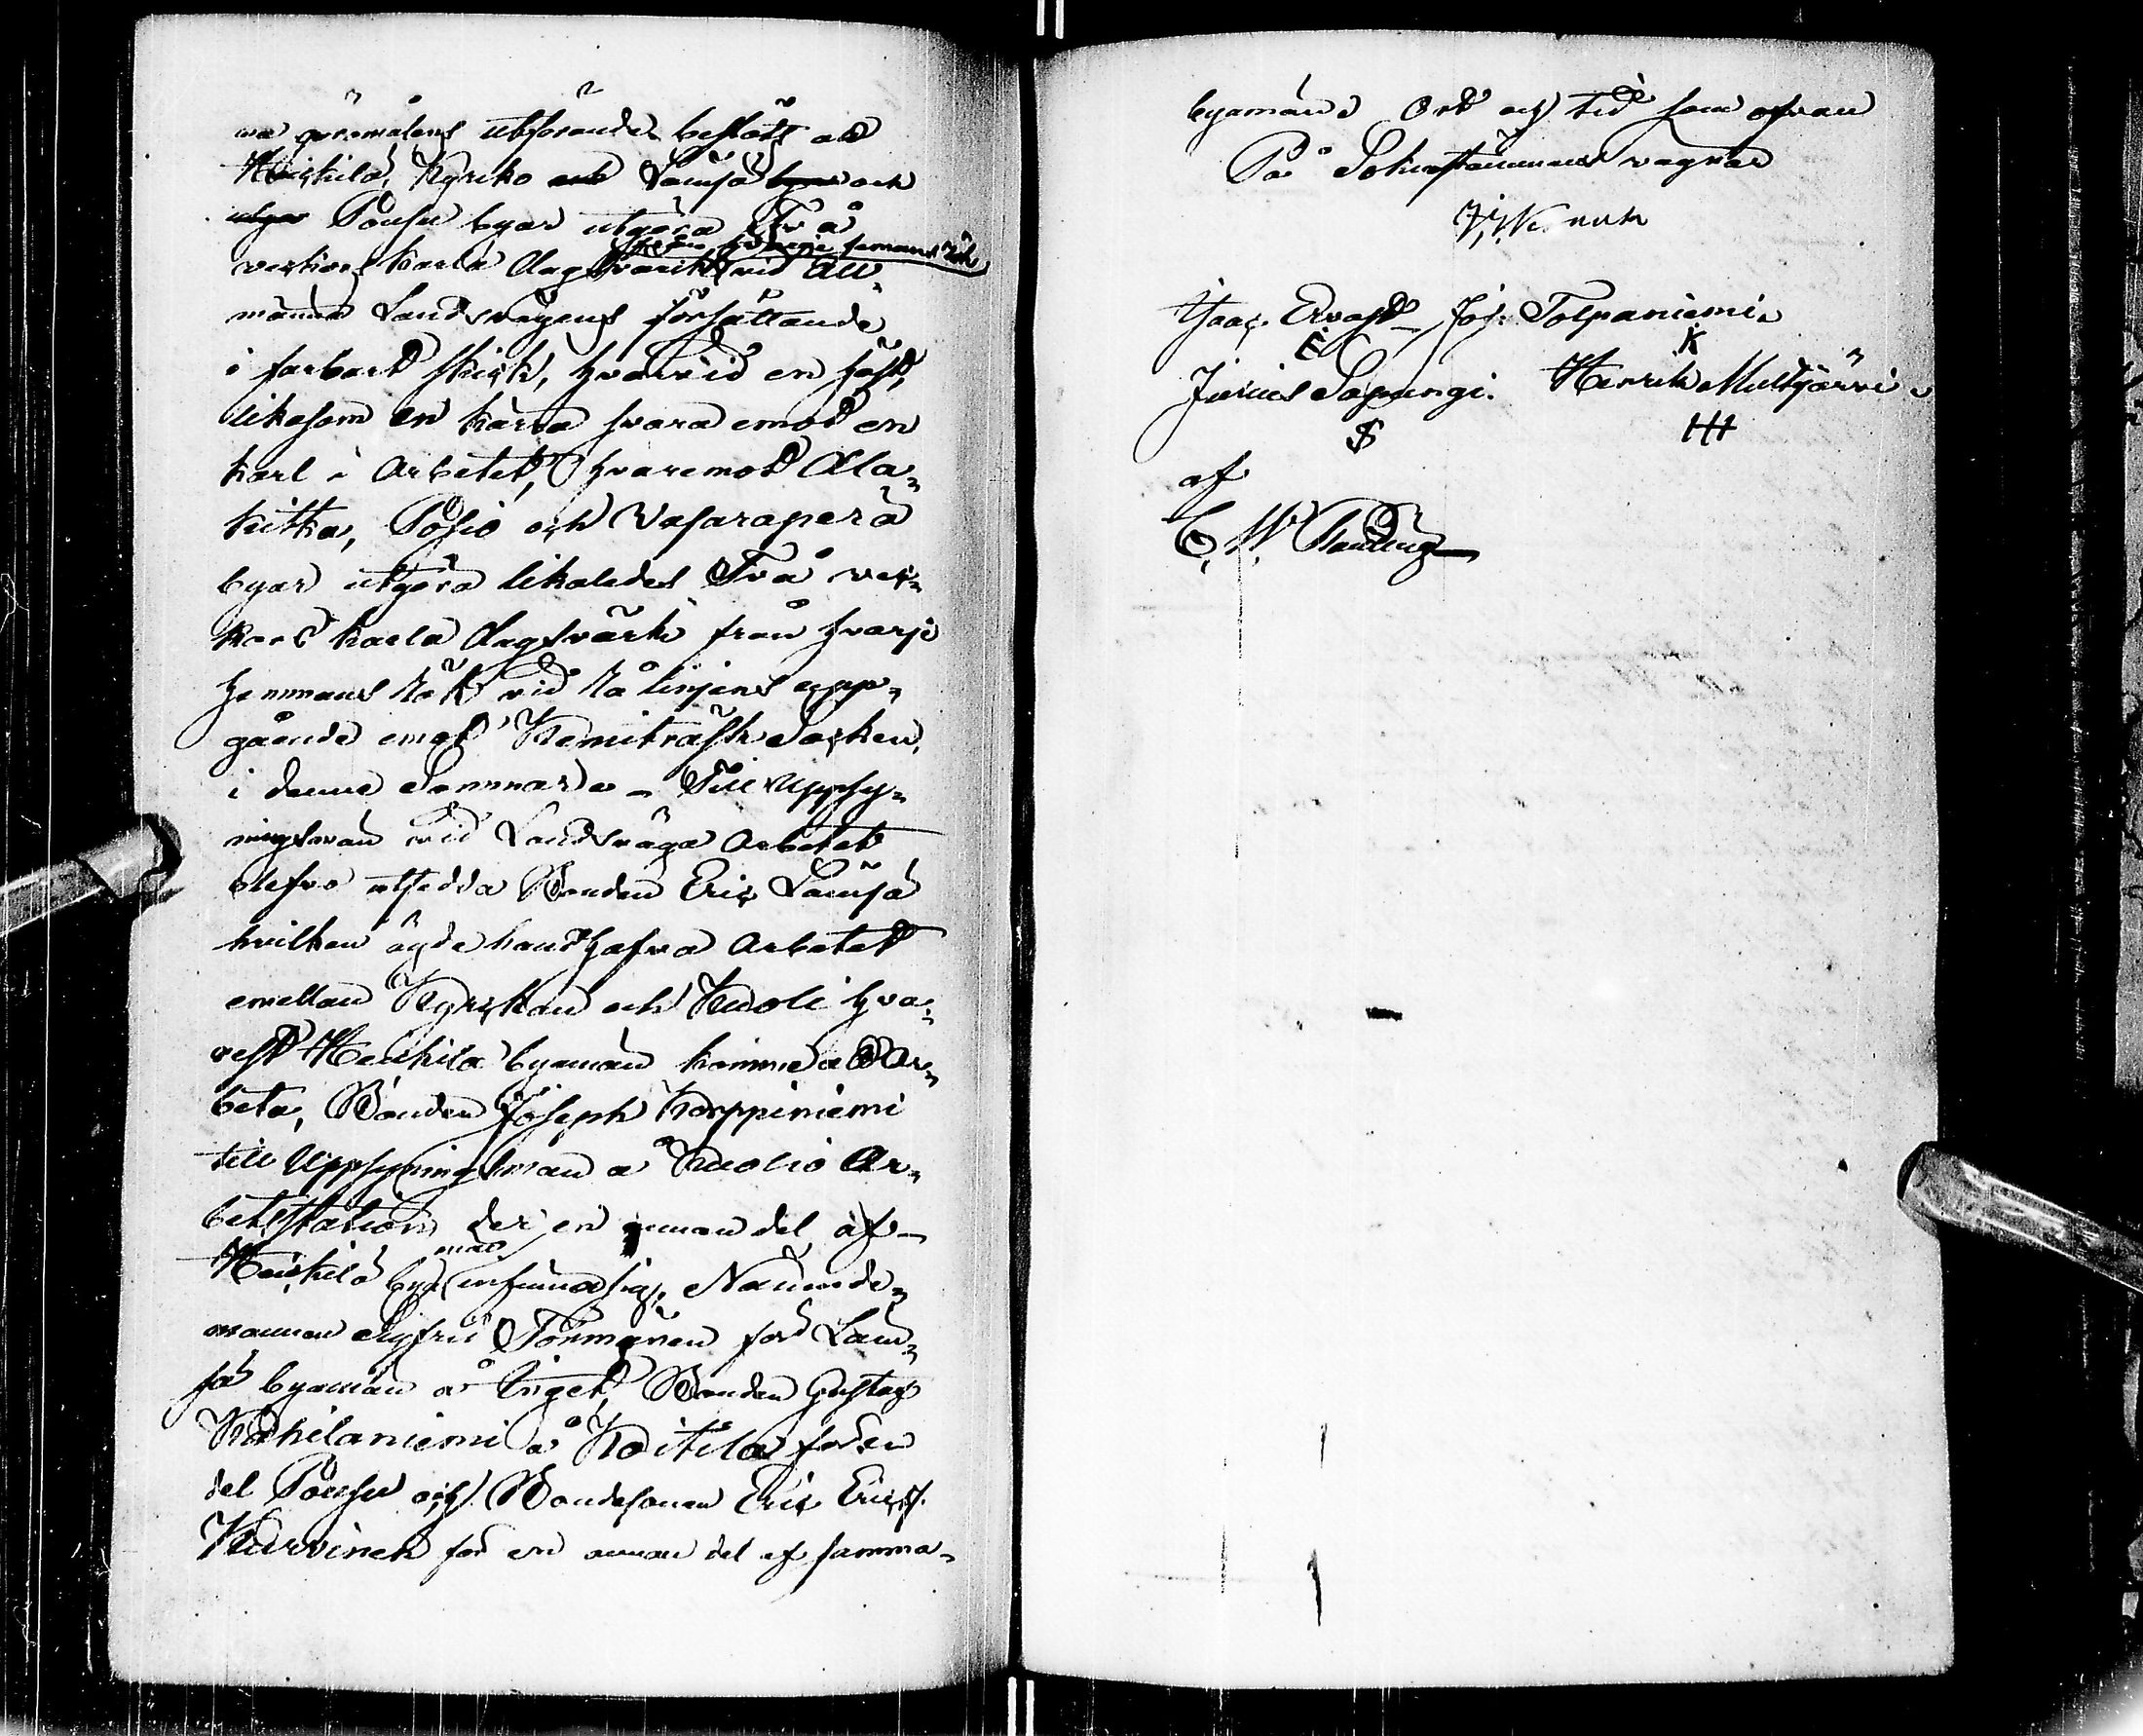 na göromålens utförande beslöts att
Heikkilä, Kyrcko och Lämsä byar och
utgör Pousu byar utgöra Två
verkars karla Dagsvärk från hvarje hemmans rök vid all¬
männa Landsvägens försättande
i farbart skick, hvarvid en häst,
likasom en kärra svara emot en
karl i Arbetet, hvaremot Ala¬
kitka, Posio och Vasaraperä
byar utgöra likaledes Två ver¬
kars karla dagsvärk från hvarje
hemmans rök vid rålinjens upp¬
gående emot Kemiträsk Socken,
i denne Sommar. – Till Uppsy¬
ningsman vid Landsväga Arbetet
blefvo utsedda Bonden Eric Lämsä
hvilken ägde handhafva Arbetet
emellan Kyrckan och Kuoli hva¬
rest Heikkilä byamän komme att Ar¬
beta, Bonden Joseph Korppiniemi
till Uppsyningsman å Kuolio Ar¬
betsstation der en annan del af
Heickilä byamän infinna sig, Nämnde¬
mannen Sigfrid Törmänen för Läm¬
sä byamän å Inget, Bonden Gustaf
Kahilaniemi å Koitila för en
del Pousu och Bondesonen Eric Ericss.
Kurvinen för en annan del af samma
byamän. Ort och tid som ofvan
På Sokne stämmans vagnar
Isaac Ervast Jos. Tolpaniemi
E K
Jurius Sapungi. Henrik Multjärvi
S HH
af
C. W.